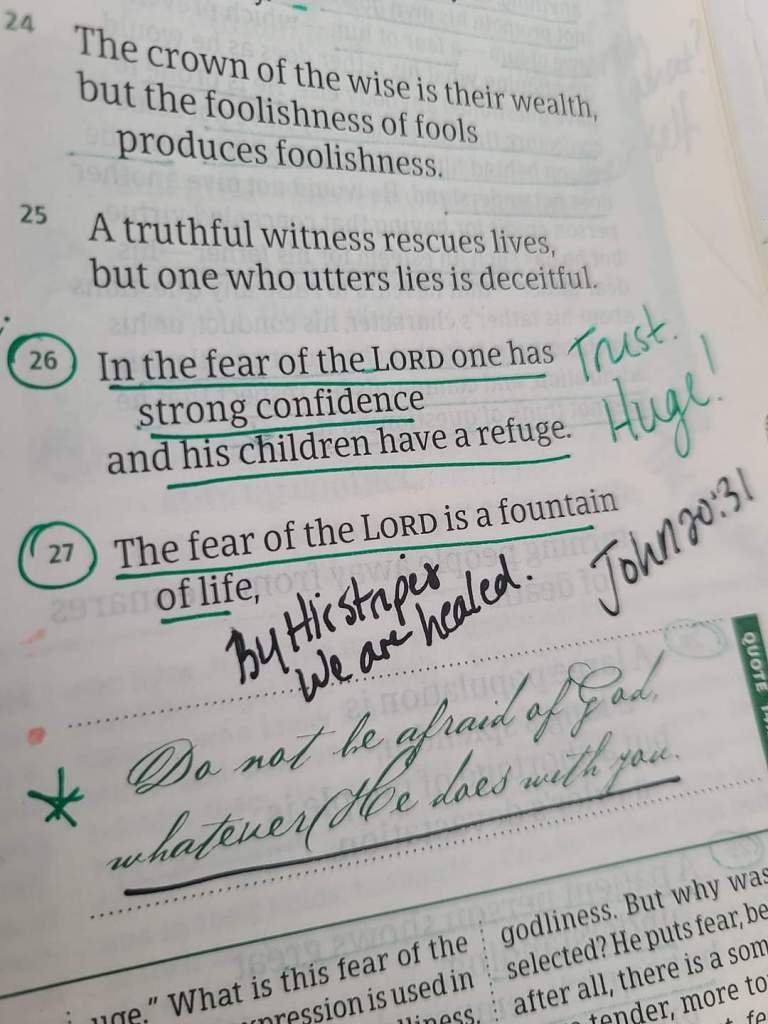 24
The crown of the wise is their wealth,
but the foolishness of fools
produces foolishness.
25
A truthful witness rescues lives,
but one who utters lies is deceitful.
26
In the fear of the LORD one has
strong confidence
and his children have a refuge.
Trust.
Huge!
27
The fear of the LORD is a fountain
of life,
By His stripes
We are healed.
John 20:31
QUOTE
Do not be afraid of God,
whatever He does with you.
uge." What is this fear of the
expression is used in
godliness. But why was
selected? He puts fear, be
after all, there is a som
tender, more to